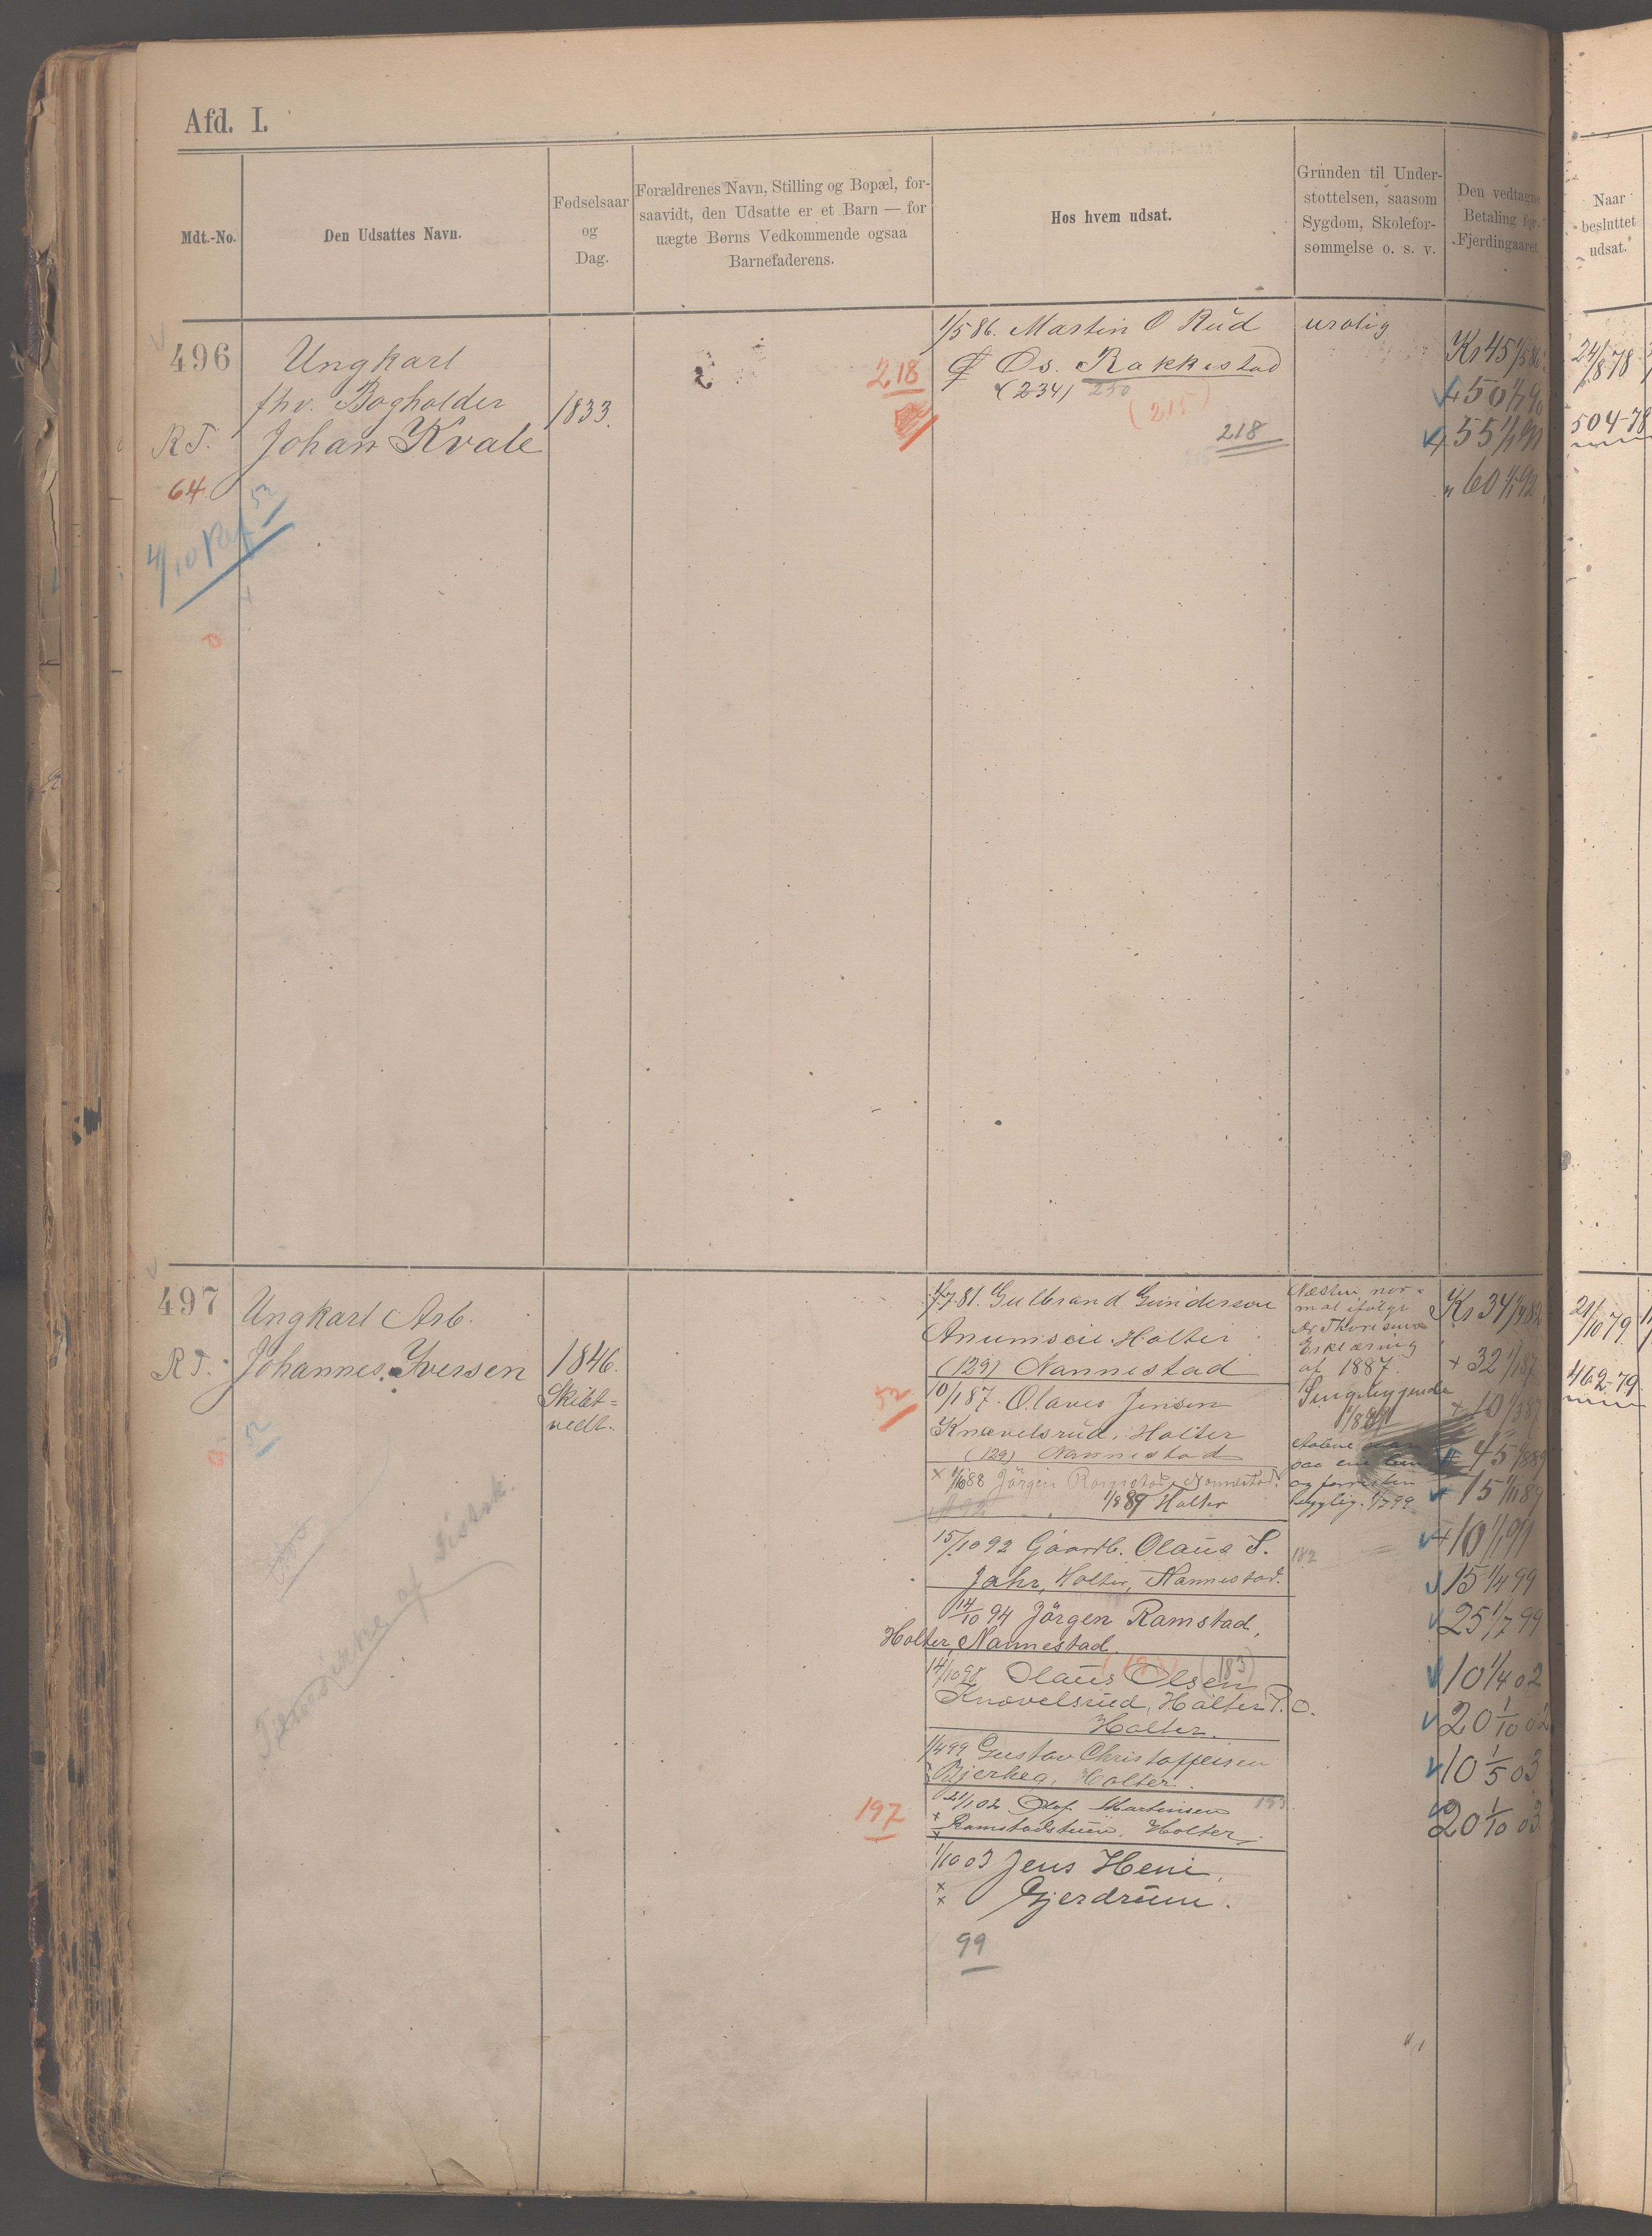 Afd. I.
Mdt.-No.
Den Udsattes Navn.
Fødselsaar
og
Dag.
Forældrenes Navn, Stilling og Bopæl, for-
saavidt, den Udsatte er et Barn — for
uægte Børns Vedkommende ogsaa
Barnefaderens.
Hos hvem udsat.
Grunden til Under-
støttelsen, saasom
Sygdom, Skolefor-
sømmelse o. s. v.
Den vedtagne
Betaling for
Fjerdingaaret.
Naar
besluttet
udsat.
496
Ungkarl
fhv. Bogholder
R T. Johan Kvale
64
52
1833.
218
1/5 86. Martin O Rud
Os. Rakkestad
(234) 250
(215)
218
urolig
Kr 45 1/5 86
+ 50 1/7 90
+ 55 1/1 91
" 60 1/1 92
24/8 78
504-78
497
Ungkarl Arb.
R T. Johannes Iversen
52
1846.
Skibt=
vedt.
Tilstedeværelse af
1/7 81. Gulbrand Gundersen
Holter
(129) Nannestad
52
10/1 87. Olaves Jensen
Knævelsrud, Holter
(129) Nannestad
x 1/10 88 Jörgen Ramstad, Nannestad.
1/8 89 Holter
15/10 92 Gaardb. Olaus S.
Jahr, Holter, Nannestad.
14/10 94 Jörgen Ramstad,
Holter, Nannestad.
(183)
14/10 98 Olaus Olsen
Knævelsrud, Holter P.O.
Holter.
1/4 99 Gustav Christoffersen
Bjerkeg, Holter.
197
21/1 02 Olof Martinsen
Ramstadstuen, Holter.
1/10 03 Jens Heni,
Gjerdrum.
99
Næsten nor-
mal ifølge
Erklæring
af 1887.
Sengeliggende
182
Kr 34 1/1 82
+ 32 1/1 87
+ 10 1/3 87
45 1/8 89
15 1/11 89
+ 10 1/1 91
15 1/4 99
25 1/7 99
10 1/4 02
20 1/10 02
10 1/5 03
20 1/10 03
21/10 79.
462-79